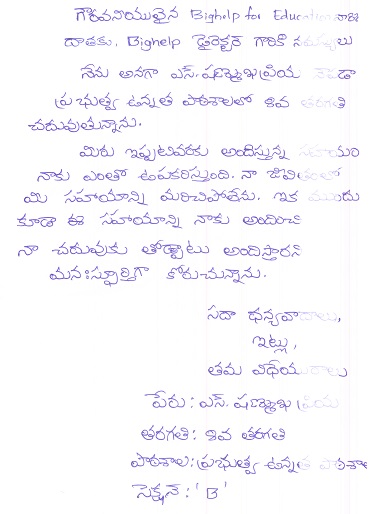 గౌరవనీయులైన Bighelp for Education వారికి
దాతకు, Bighelp డైరెక్టర్ గారికి నమస్కారములు
నేను అనగా ఎస్. షణ్ముఖప్రియ
ప్రభుత్వ ఉన్నత పాఠశాలలో తరగతి
చదువుతున్నాను.
మీరు ఇప్పటివరకు అందిస్తున్న సహాయం
నాకు ఎంతో ఉపకరిస్తుంది. నా జీవితంలో
మీ సహాయాన్ని మరిచిపోలేను. ఇక ముందు
కూడా ఈ సహాయాన్ని నాకు అందించి
నా చదువుకు తోడ్పాటు అందిస్తారని
మనఃస్ఫూర్తిగా కోరుచున్నాను.
సదా ధన్యవాదాలు,
ఇట్లు,
తమ విధేయురాలు
పేరు: ఎస్. షణ్ముఖ ప్రియ
తరగతి: తరగతి
పాఠశాల: ప్రభుత్వ ఉన్నత పాఠశాల
సెక్షన్: 'B'